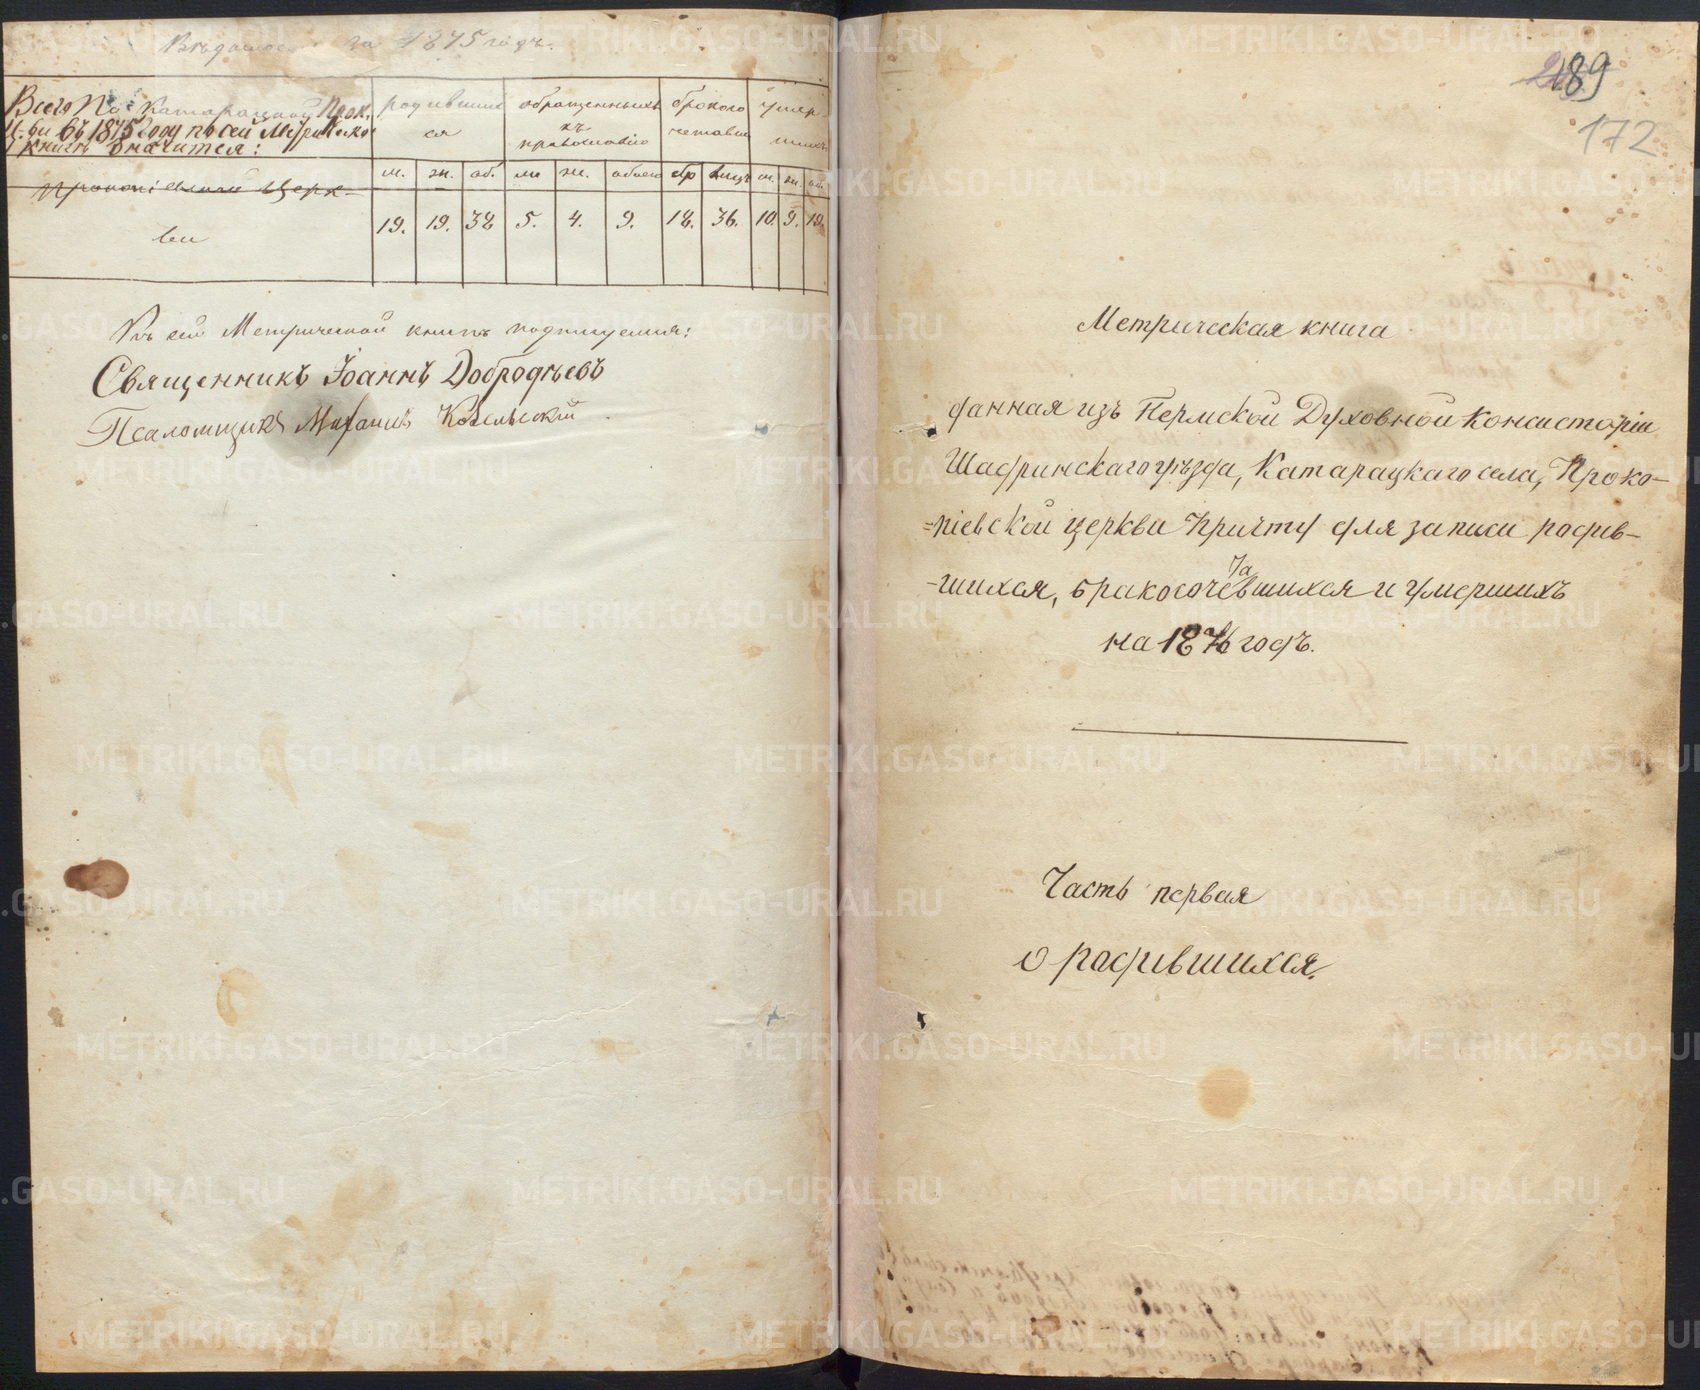 за 1875 годъ.
Всего По Катарацкой Прок.
Ц.ви въ 1875 году по сей Метрическо
й книгѣ значится:
Прокопіевской Церк-
ви
родивших
ся
обращенныхъ
къ
православію
бракосо
четавш
умер-
шихъ
м. жн. об. м. ж. обоего бр лицъ м. ж. об.
19. 19. 38 5. 4. 9. 18. 36. 10. 9. 19.
Къ сей Метрической книгѣ подпишемся:
Священникъ Іоаннъ Добродѣевъ
Псаломщикъ
189
172
Метрическая книга
данная изъ Пермской Духовной Консисторіи
Шадринскаго уѣзда, Катарацкаго села, Проко-
-піевской церкви Причту для записи родив-
-шихся, бракосочетавшихся и умершихъ
на 1876 годъ.
Часть первая
о родившихся.
METRIKI.GASO-URAL.RU